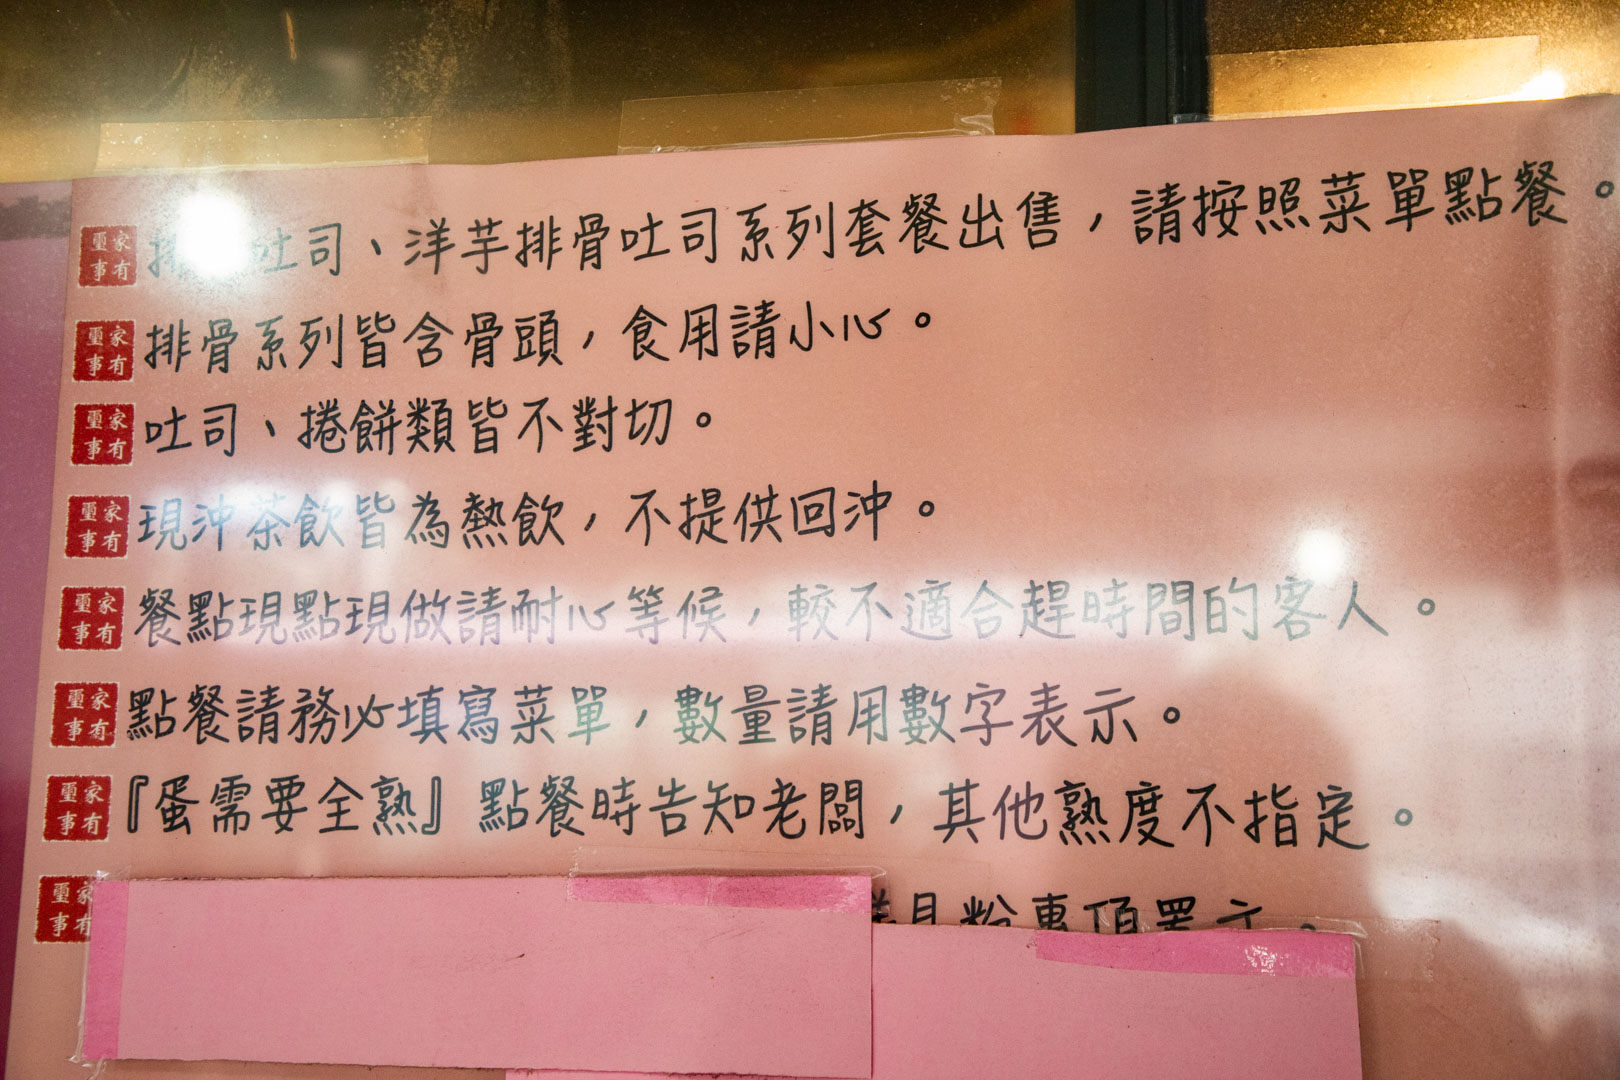 家有璽事 排 吐司、洋芋排骨吐司系列套餐出售，請按照菜單點餐。
家有璽事 排骨系列皆含骨頭，食用請小心。
家有璽事 吐司、捲餅類皆不對切。
家有璽事 現沖茶飲皆為熱飲，不提供回沖。
家有璽事 餐點現點現做請耐心等候，較不適合趕時間的客人。
家有璽事 點餐請務必填寫菜單，數量請用數字表示。
家有璽事 『蛋需要全熟』點餐時告知老闆，其他熟度不指定。
家有璽事